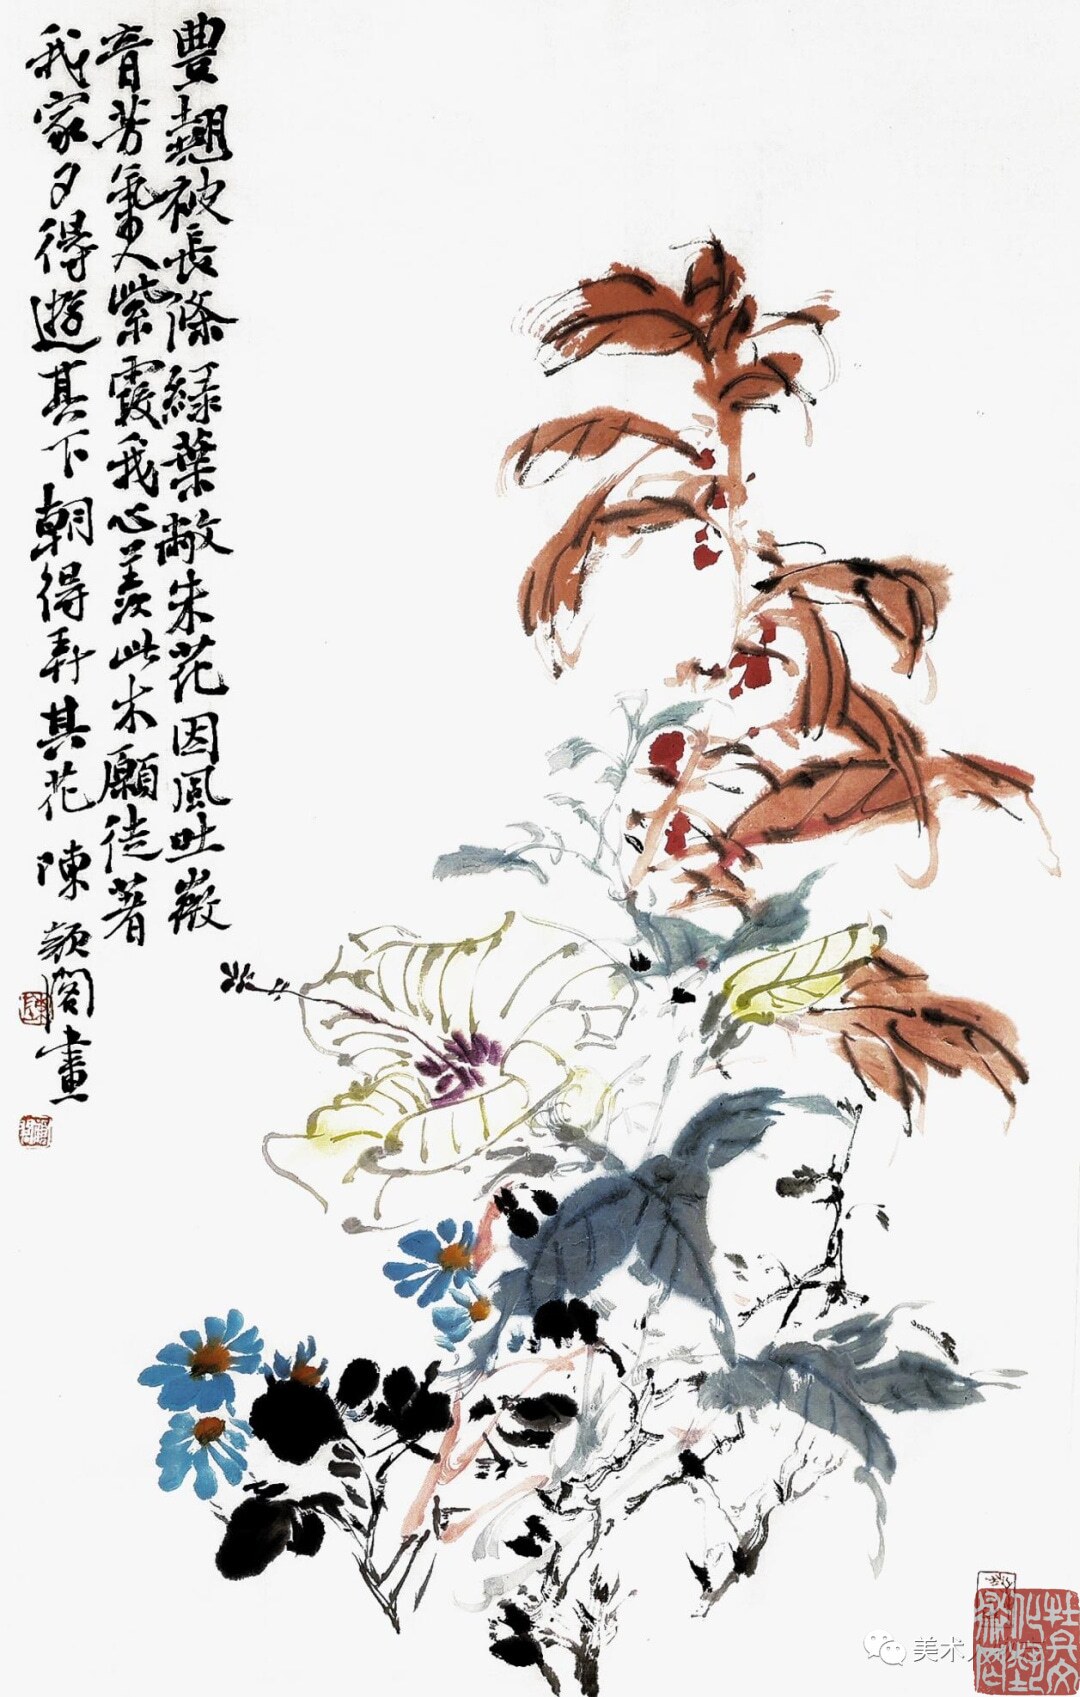 豊翹被長條緑葉蔽朱花因風吐微
音芳氣入紫霞我心羨此木願徒著
我家夕得遊其下朝得弄其花 陳頴閣畫
美术